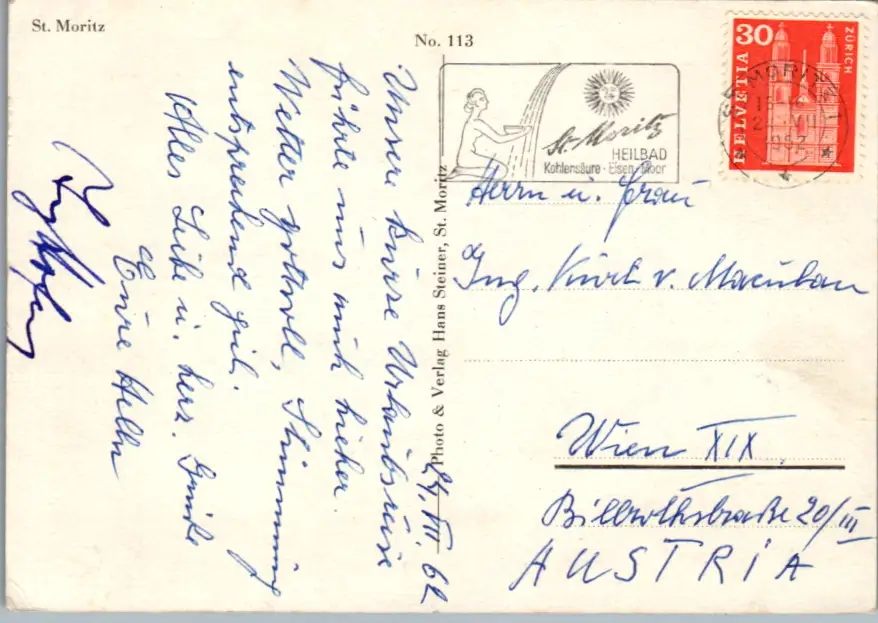 St. Moritz
No. 113
30
HELVETIA
ZÜRICH
ST. MORITZ 1
1962
St. Moritz
HEILBAD
Kohlensäure - Eisen - Moor
Photo & Verlag Hans Steiner, St. Moritz
24. VII. 62
Unsere kurze Urlaubsreise
führte uns auch hieher.
Wetter prottvoll, Stimmung
entsprechend gut.
Alles Liebe u. herz. Grüße
Eure Helln
Herrn u. Frau
Ing. Kurt v. Maculan
Wien XIX.
Billrothstraße 20/III
AUSTRIA